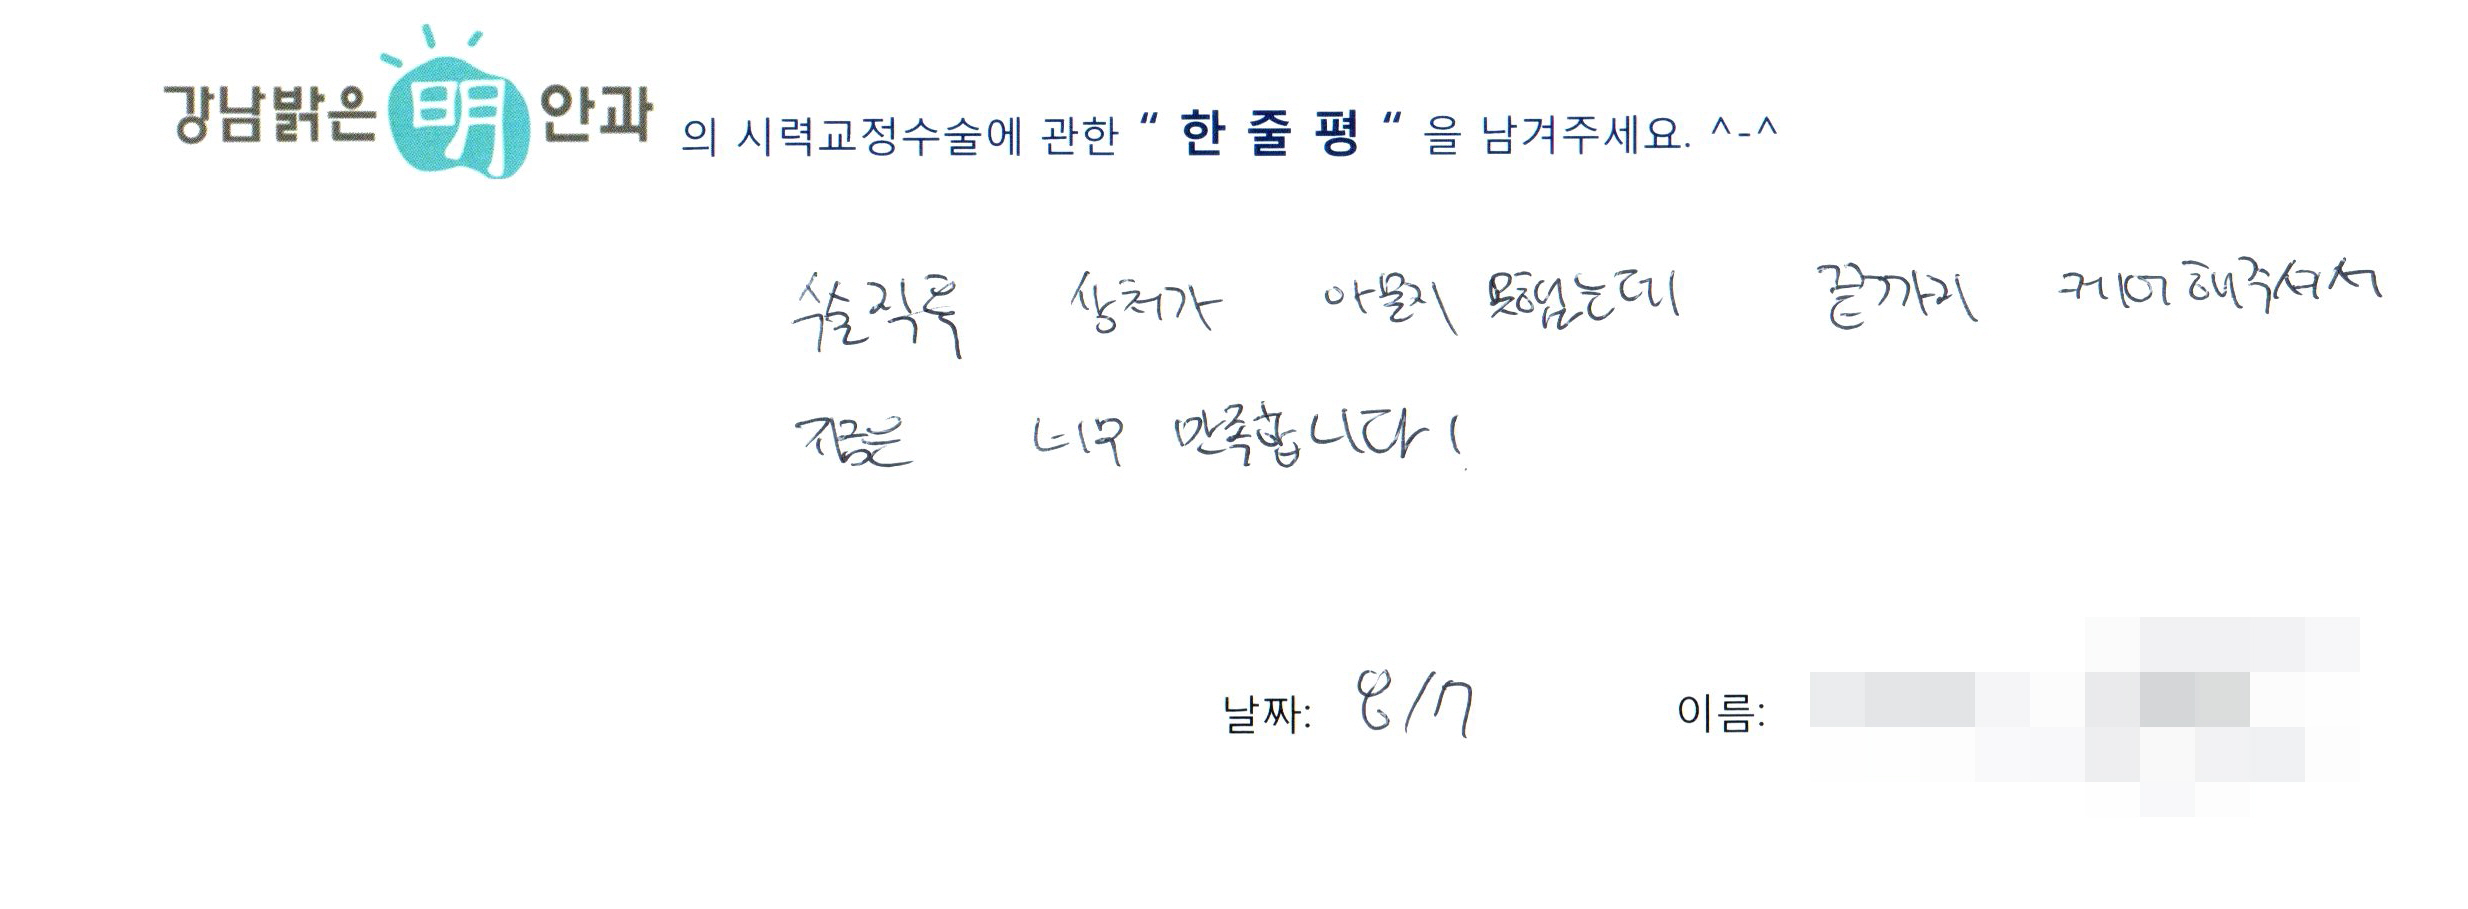 강남밝은明안과 의 시력교정수술에 관한 “ 한 줄 평 “ 을 남겨주세요. ^-^
수술직후 상처가 아물지 못했는데 끝까지 케어해주셔서
지금은 너무 만족합니다!
날짜: 8/7 이름: